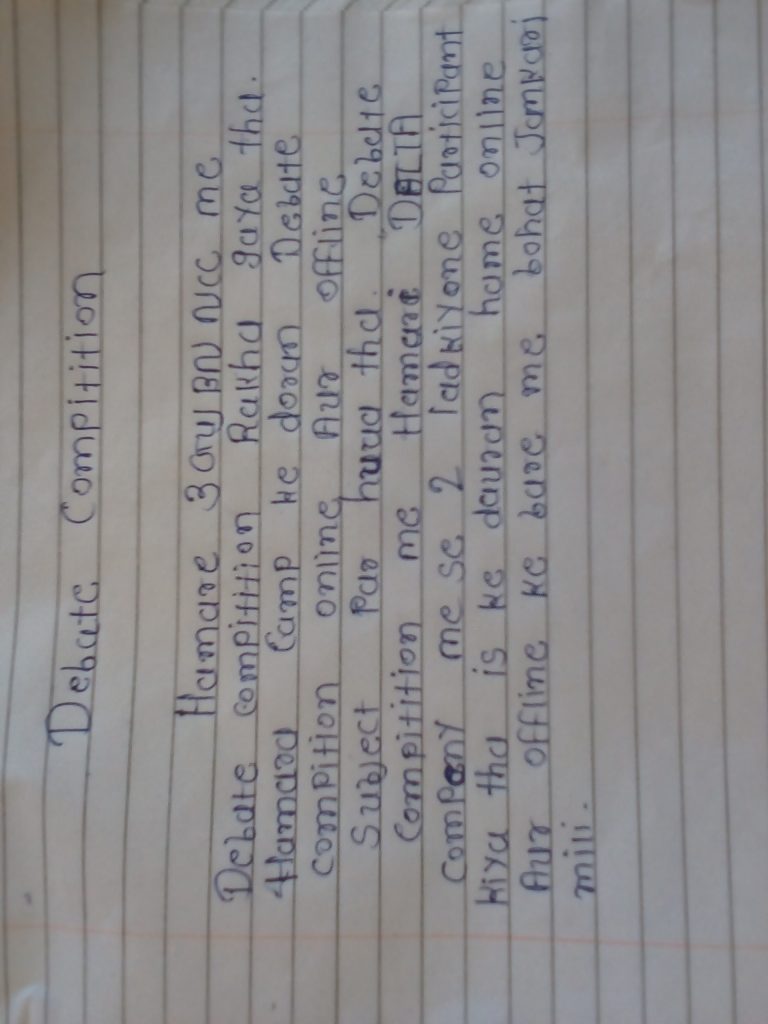 Debate Compitition
Hamare 3 Guj BN NCC me
Debate compitition Rakha gaya tha.
Hamara Camp ke doran Debate
compition online Aur offline
Subject par huaa tha. Debate
Compitition me Hamari DELTA
Company me se 2 ladkiyone Participant
kiya tha is ke dauran hame online
Aur offline ke bare me bohat Jamkari
mili.